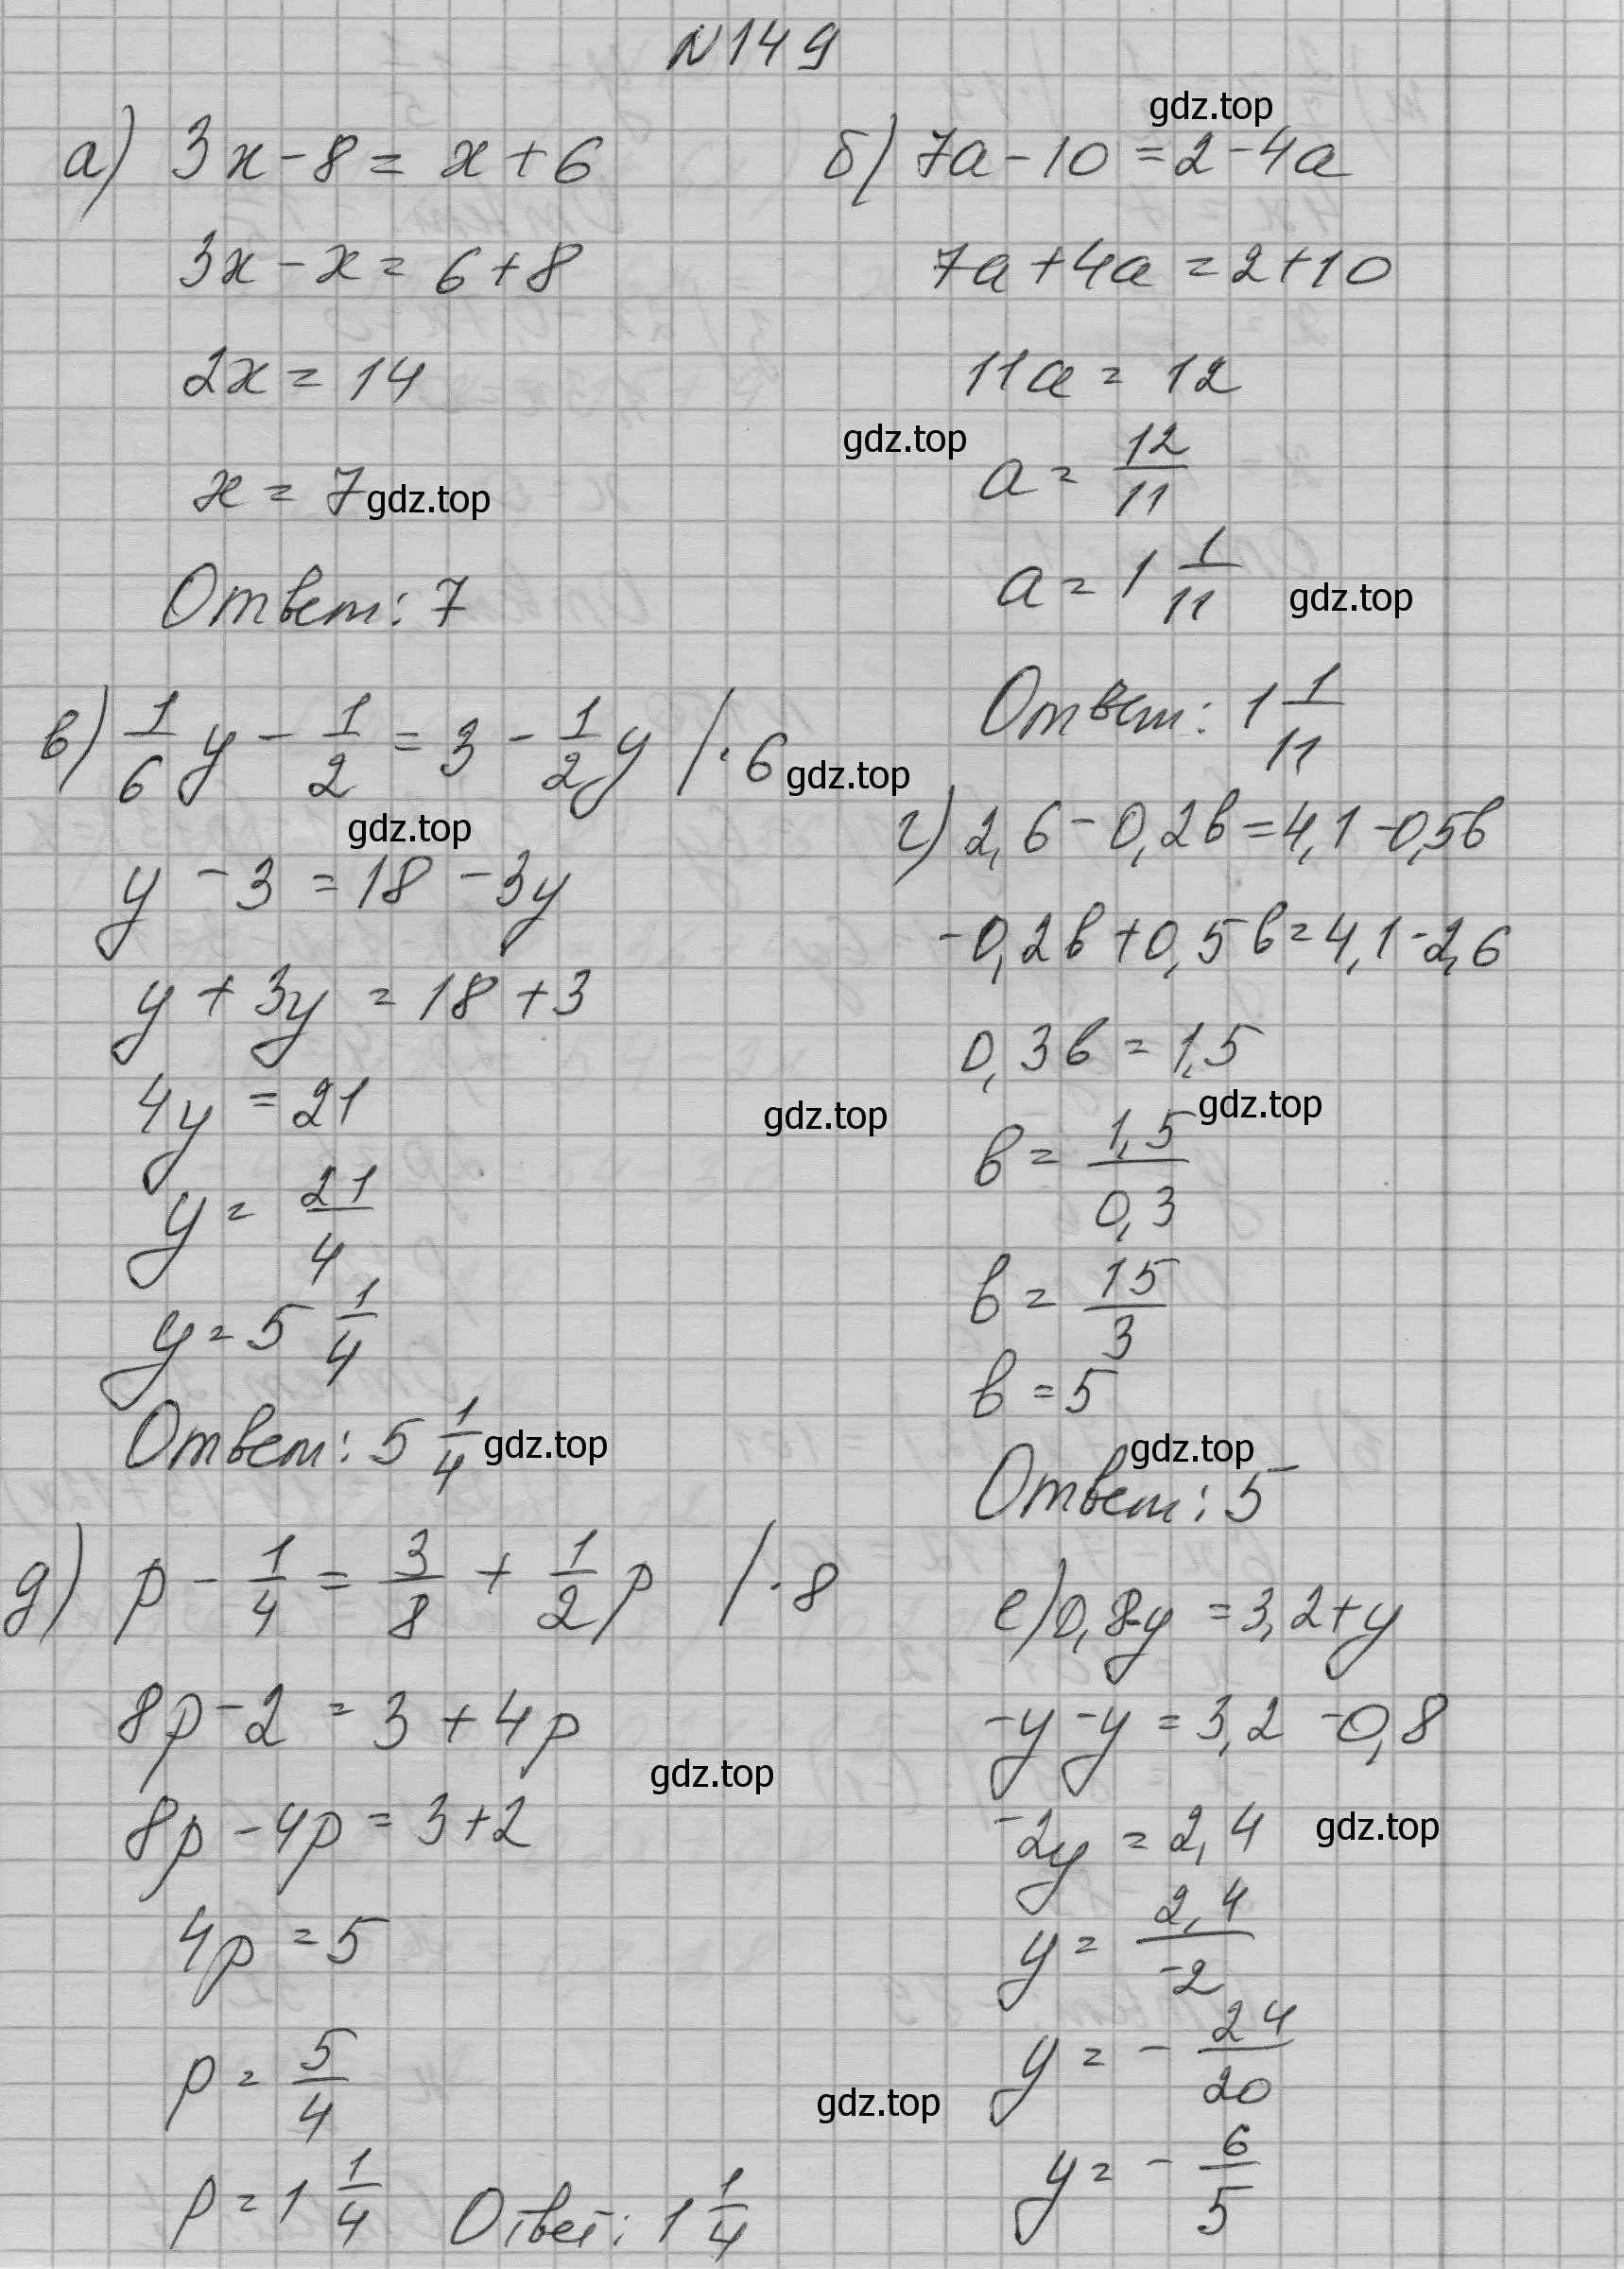 №149
а) 3x - 8 = x + 6
3x - x = 6 + 8
2x = 14
x = 7
Ответ: 7
gdz.top
б) 7a - 10 = 2 - 4a
7a + 4a = 2 + 10
11a = 12
gdz.top
a = 12/11
a = 1 1/11
gdz.top
Ответ: 1 1/11
gdz.top
в) 1/6 y - 1/2 = 3 - 1/2 y /·6
gdz.top
gdz.top
y - 3 = 18 - 3y
y + 3y = 18 + 3
4y = 21
y = 21/4
y = 5 1/4
Ответ: 5 1/4
gdz.top
г) 2,6 - 0,2b = 4,1 - 0,5b
-0,2b + 0,5b = 4,1 - 2,6
0,3b = 1,5
gdz.top
gdz.top
b = 1,5/0,3
b = 15/3
b = 5
gdz.top
Ответ: 5
д) p - 1/4 = 3/8 + 1/2 p /·8
8p - 2 = 3 + 4p
gdz.top
8p - 4p = 3 + 2
4p = 5
p = 5/4
p = 1 1/4
Ответ: 1 1/4
е) 0,8 - y = 3,2 + y
-y - y = 3,2 - 0,8
-2y = 2,4
gdz.top
y = 2,4/-2
y = - 24/20
gdz.top
y = - 6/5